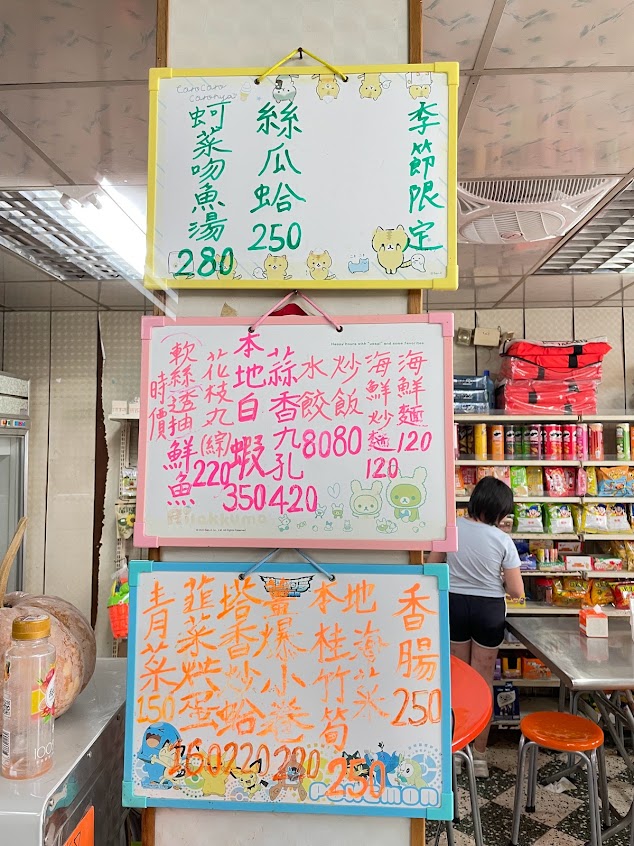 CaroCaro
Caronya
季節限定
絲瓜蛤
250
蚵菜吻魚湯
280
海鮮麵
120
海鮮炒麵
120
炒飯
80
水餃
80
蒜香九孔
420
本地白蝦
350
花枝丸(綜)
220
軟絲透抽
鮮魚
時價
Rilakkuma
香腸
250
本地
海菜
桂竹筍
250
爆小卷
280
塔香炒蛤
220
韮菜烘蛋
160
青菜
150
POKEMON